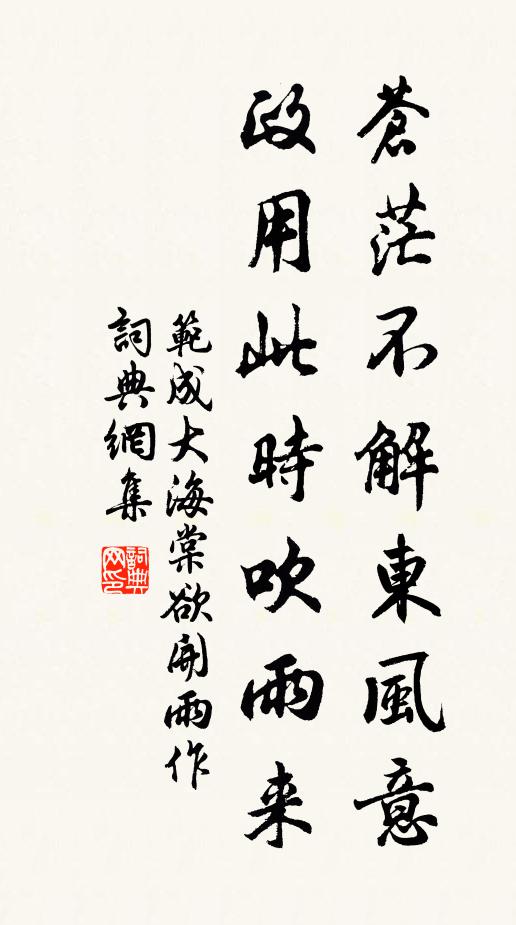 蒼茫不解東風意
政用此時吹雨来
範成大海棠欲開雨作
詞典網集
詞典网印